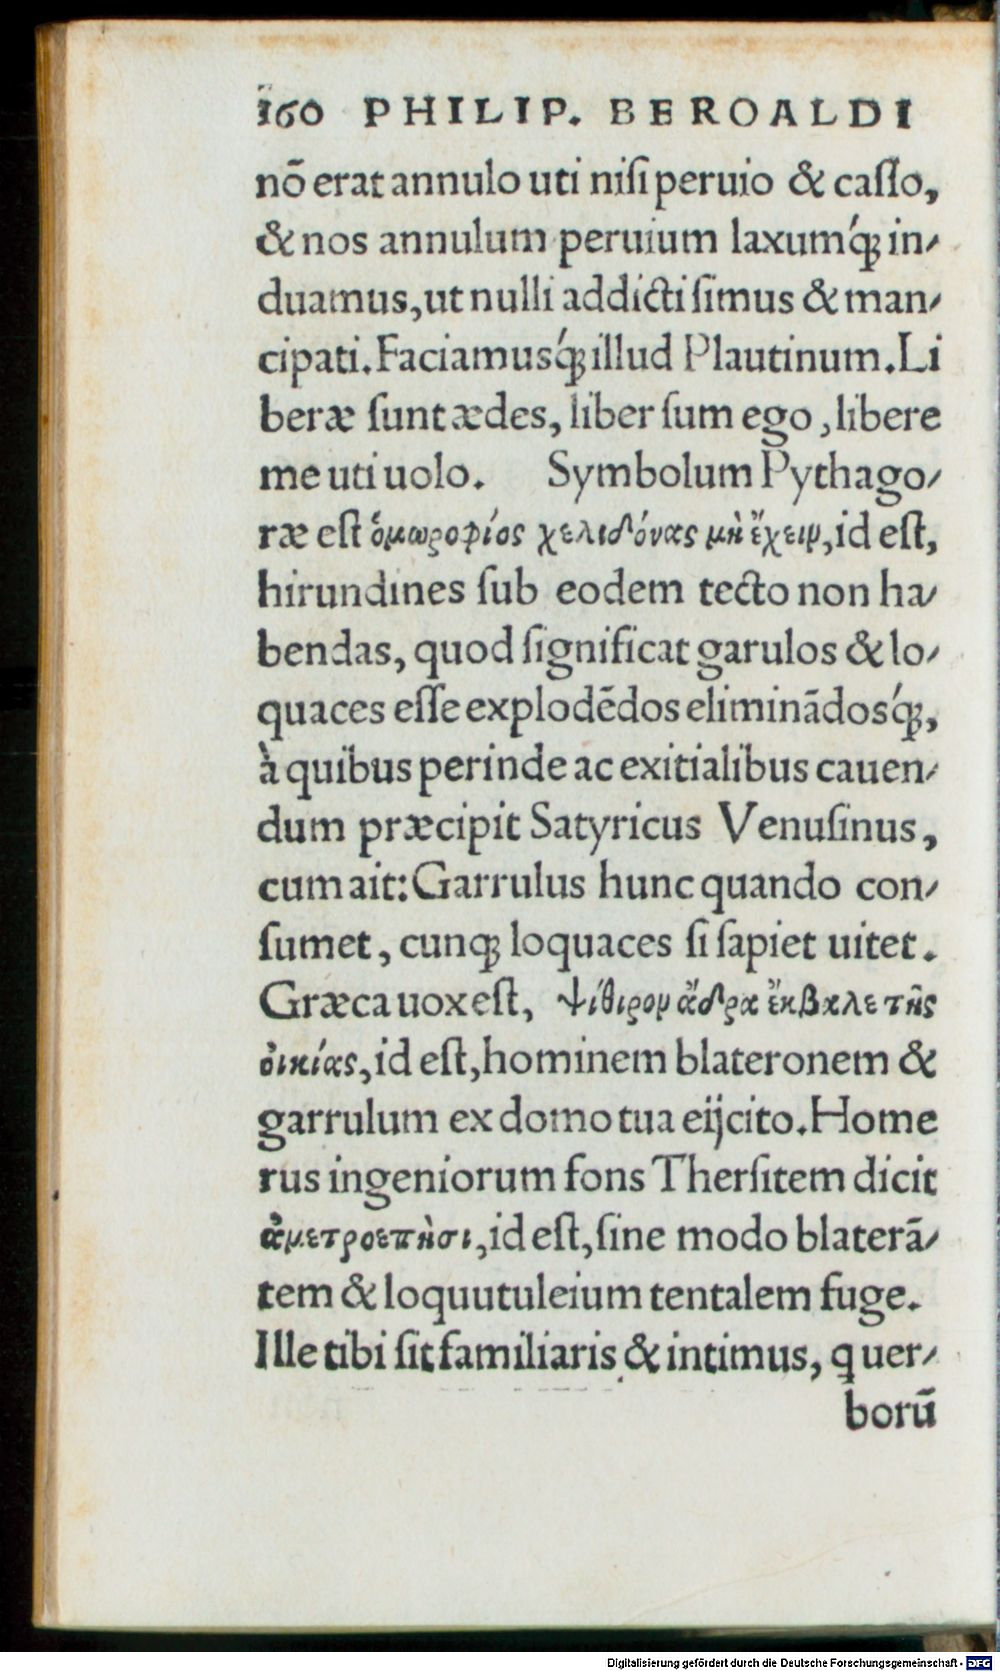 160 PHILIP. BEROALDI
nō erat annulo uti niſi peruio & caſſo,
& nos annulum peruium laxumq́; in⸗
duamus, ut nulli addicti ſimus & man⸗
cipati. Faciamusq́; illud Plautinum. Li
beræ ſunt ædes, liber ſum ego, libere
me uti uolo. Symbolum Pythago⸗
ræ eſt ὁμωροφίος χελιδόνας μὴ ἔχειν, id eſt,
hirundines ſub eodem tecto non ha⸗
bendas, quod ſignificat garulos & lo⸗
quaces eſſe explodēdos eliminādosq́;,
à quibus perinde ac exitialibus cauen⸗
dum præcipit Satyricus Venuſinus,
cum ait: Garrulus hunc quando con⸗
ſumet, cunq; loquaces ſi ſapiet uitet.
Græca uox eſt, ψίθιρον ἄδρα ἔκβαλε τῆς
ὀικίας, id eſt, hominem blateronem &
garrulum ex domo tua eijcito. Home
rus ingeniorum fons Therſitem dicit
ἀμετροεπὴσι, id eſt, ſine modo blaterā⸗
tem & loquutuleium tentalem fuge.
Ille tibi ſit familiaris & intimus, q uer⸗
borū
Digitalisierung gefördert durch die Deutsche Forschungsgemeinschaft - DFG